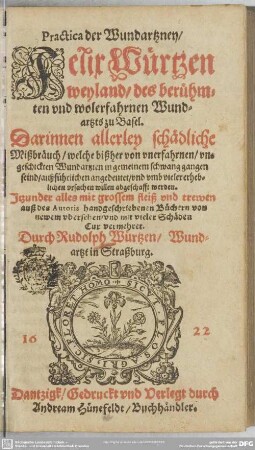 Practica der Wundartzney/
Felix Würtzen
weyland/ des berühm-
ten vnd wolerfahrnen Wund-
artzts zu Basel.
Darinnen allerley schädliche
Mißbräuch/ welche bißher von vnerfahrnen/ vn-
geschickten Wundartzten in gemeinem schwang gangen
seind/ außführlichen angedeutet/ vnd vmb vieler erheb-
lichen vrsachen willen abgeschafft werden.
Jtzunder alles mit grossem fleiß vnd trewen
auß des Autoris handgeschriebenen Büchern von
newem vbersehen/ vnd mit vieler Schäden
Cur vermehret.
Durch Rudolph Würtzen/ Wund-
artzt in Straßburg.
HOMO SICUT FLOS AGRI SIC
16 22
Dantzigk/ Gedruckt vnd Verlegt durch
Andream Hünefeldt/ Buchhändler.